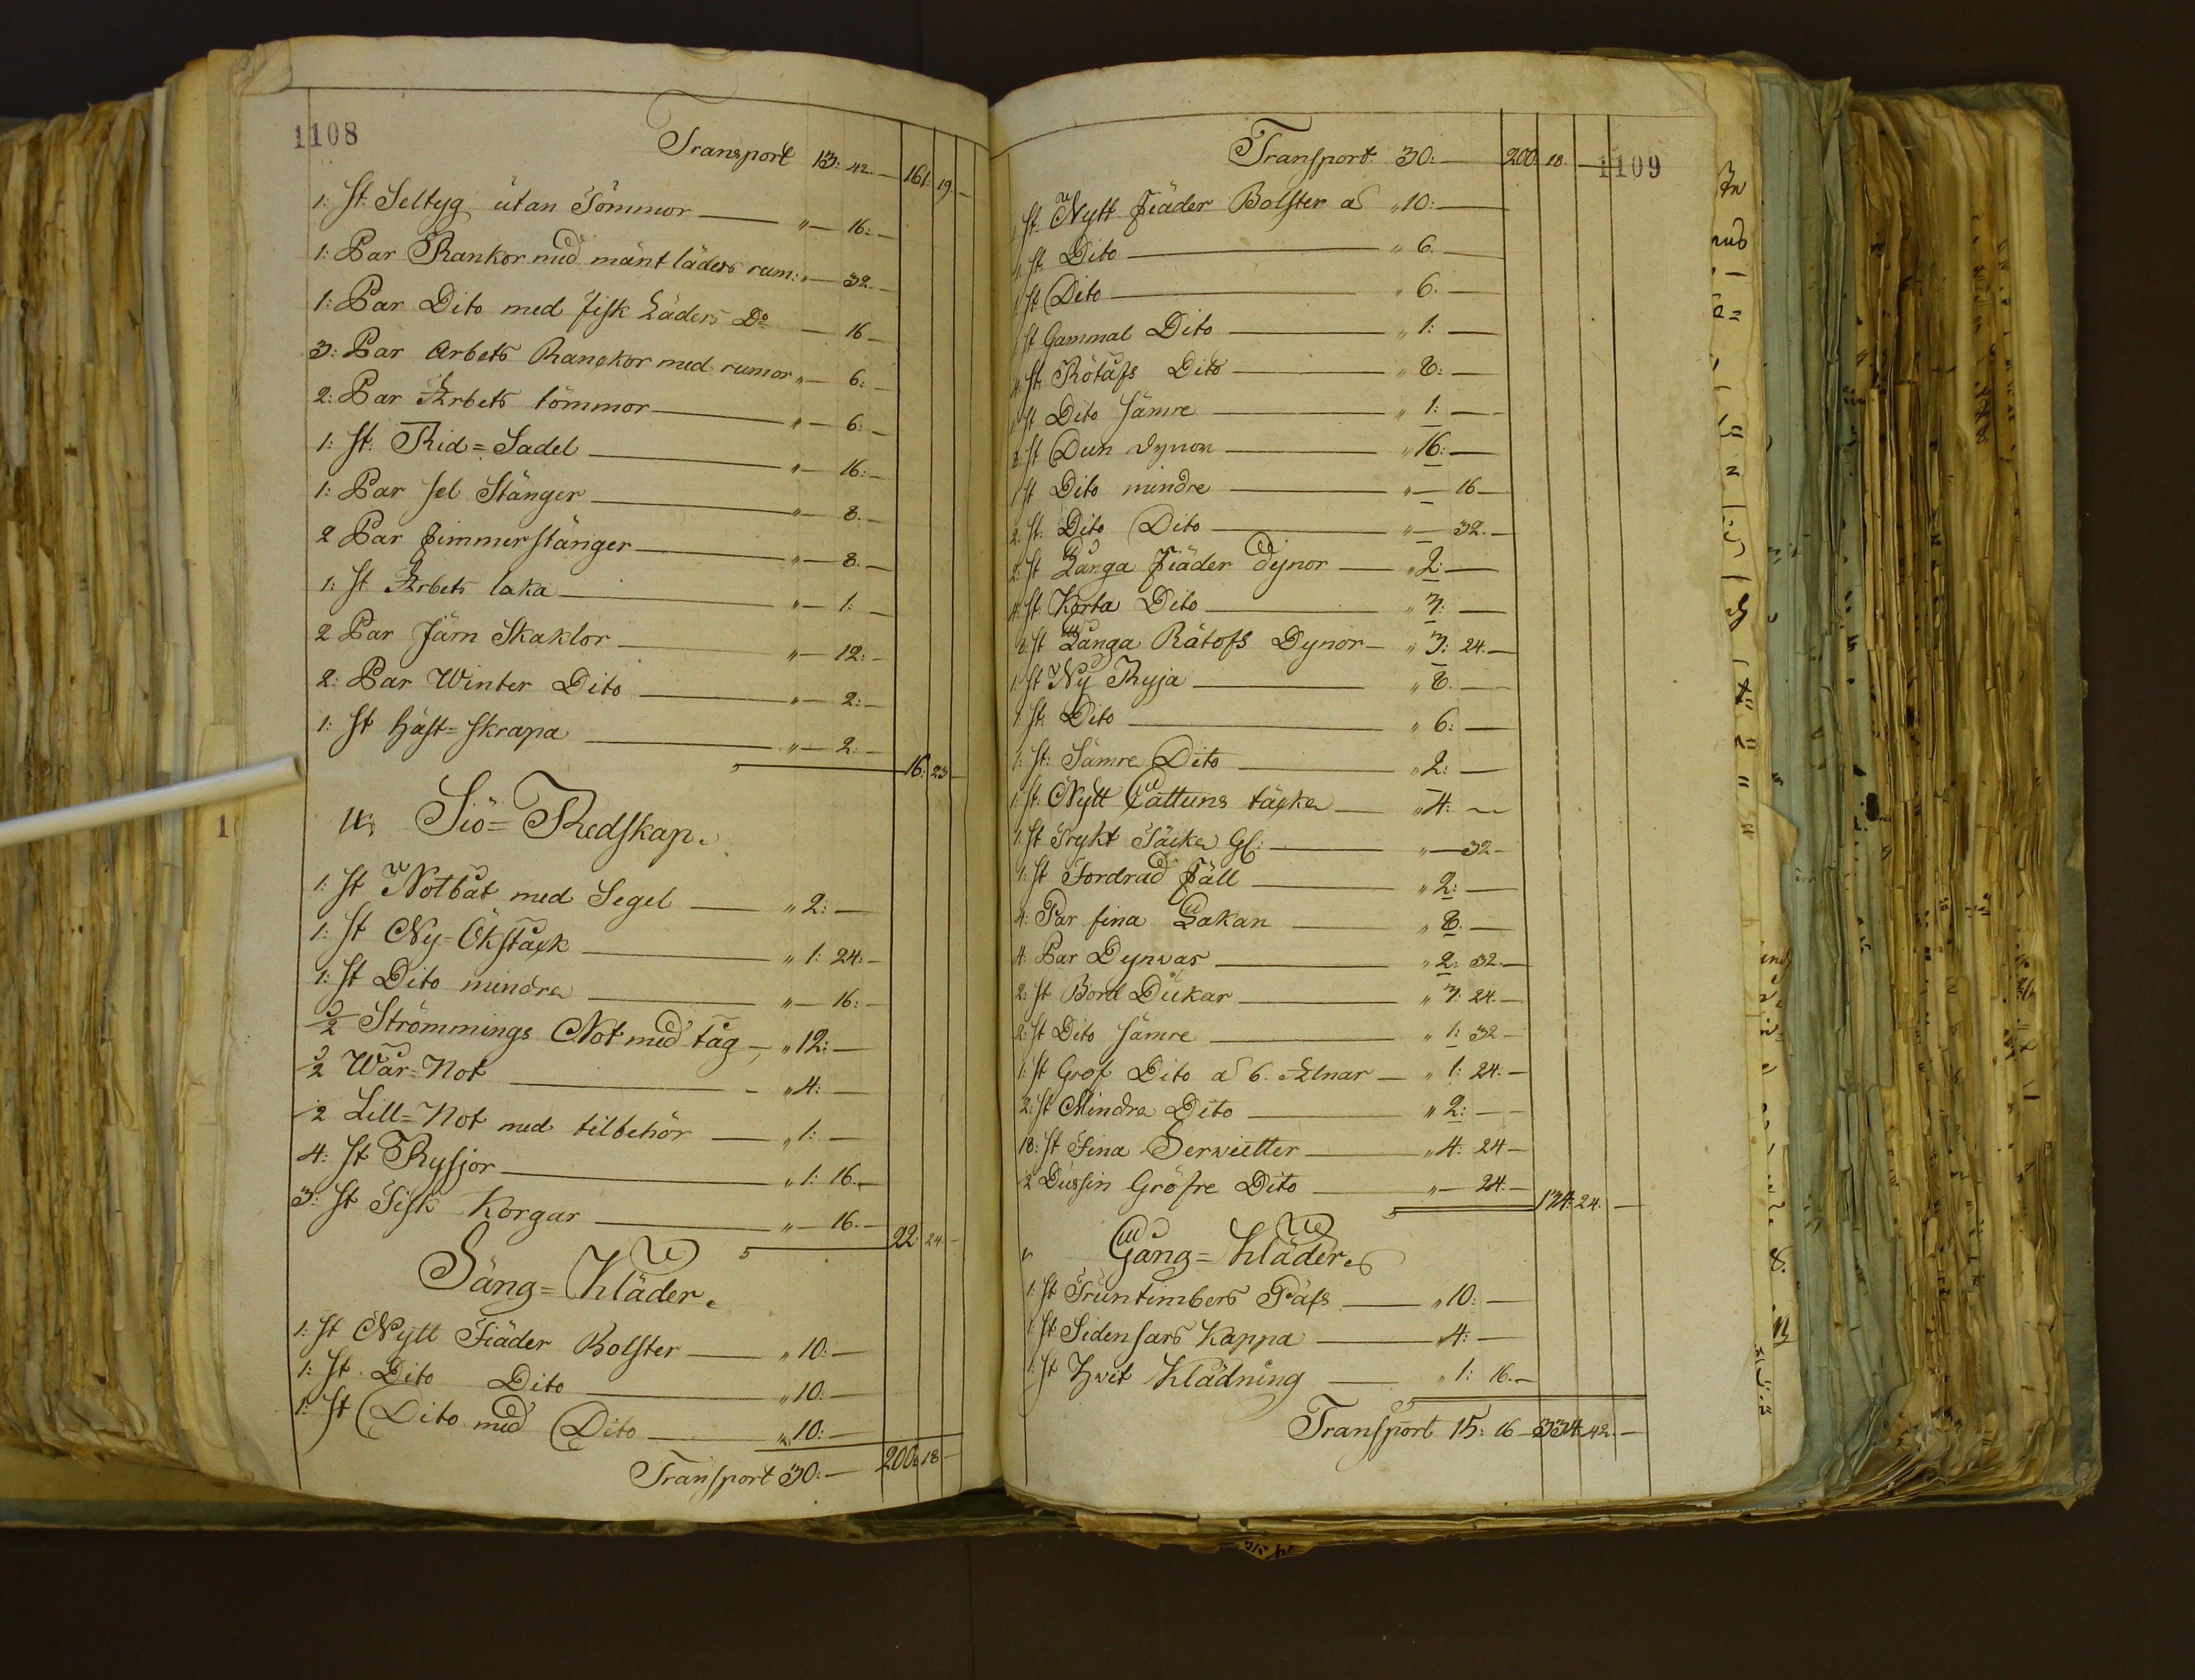 1108
Transport 13: 42. — 161: 19. —
1: st: Seltyg utan Tömmor — " — 16: —
1: Par Rankor med mänt läders rum: " — 32. —
1: Par Dito med fisk Läders Do — 16 —
3: Par Arbets Rankor med rumor " — 6: —
2: Par Arbets tömmor — " — 6: —
1: st: Rid=Sadel — " — 16: —
1: Par sel Stänger — " — 8. —
2 Par Fimmerstänger — " — 8. —
1: st Arbets laka — " — 1: —
2 Par Järn Skaklor — " — 12: —
2: Par Winter Dito — " — 2: —
1: st Häst=skrapa — " — 2: —
16: 23 —
Siö=Redskap.
1: st Notbåt med Segel — " 2: —
1: st Ny Ökståck — " 1: 24: —
1: st Dito mindra — " — 16: —
1/2 Strömmings Not med tåg — " 12: —
1/2 Wår=Not — " 4: —
1/2 Lill=Not med tilbehör — " 1: —
4: st Rysjor — " 1: 16. —
3: st Fisk Korgar — " — 16. — 22: 24. —
Säng=Kläder.
1: st Nytt Fiäder Bolster — " 10: —
1: st. Dito Dito — " 10: —
1: st Dito med Dito — " 10: —
Transport 30: — 200: 18 —
1109
Transport 30: — 200 18. —
1 st Nytt Fiäder Bolster a " 10: —
1 st Dito — " 6. —
1 st Dito — " 6. —
1 st Gammal Dito — " 1: —
4 st Rötåfs Dito — " 8: —
1 st Dito sämre — " 1: —
8: st Dun Dynor — " 16: —
1 st Dito mindre — " — 16 —
2. st: Dito Dito — " — 32. —
2: st Långa Fiäder dynor — " 2: —
4: st Korta Dito — " 3: —
8: st Långa Råtofs Dynor — " 3: 24. —
1: st Ny Ryja — " 8. —
1. st. Dito — " 6: —
1: st: Sämre Dito — " 2: —
1: st. Nytt Cattuns täcke — " 4: —
1: st Trykt Täcke Gl: — " — 32 —
1: st Fordrad Fäll — " 2: —
4: Par fina Lakan — " 8. —
4: Par Dynvar — " 2: 32. —
2: st Bord Dukar — " 3: 24. —
2: st Dito sämre — " 1: 32 —
1: st Grof Dito a 6. Alnar — " 1: 24. —
2: st Mindra Dito — " 2: —
18: st Fina Serwietter — " 4: 24 —
1/2 Dussin Gröfre Dito — " — 24. — 134: 24. —
Gång=Kläder.
1: st Fruntimbers Päls — " 10: —
1: st Sidensars Kappa — " 4: —
1: st Hwit Klädning — " 1: 16. —
Transport 15: 16 — 334: 42. —